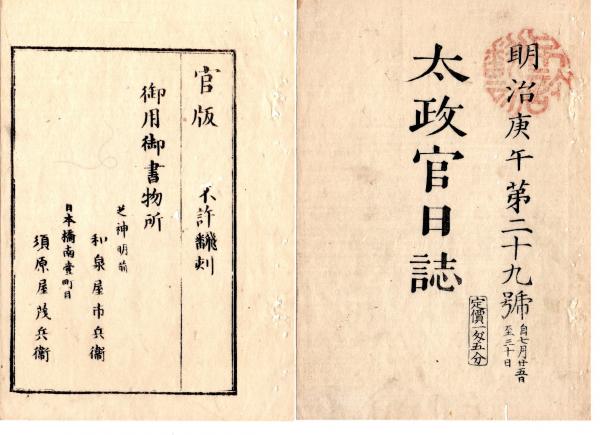 明治庚午第二十九號
自七月廿五日
至三十日
太政官日誌
定價一匁五分
官版
不許翻刻
御用御書物所
芝神明前
和泉屋市兵衞
日本橋南壹町目
須原屋茂兵衞